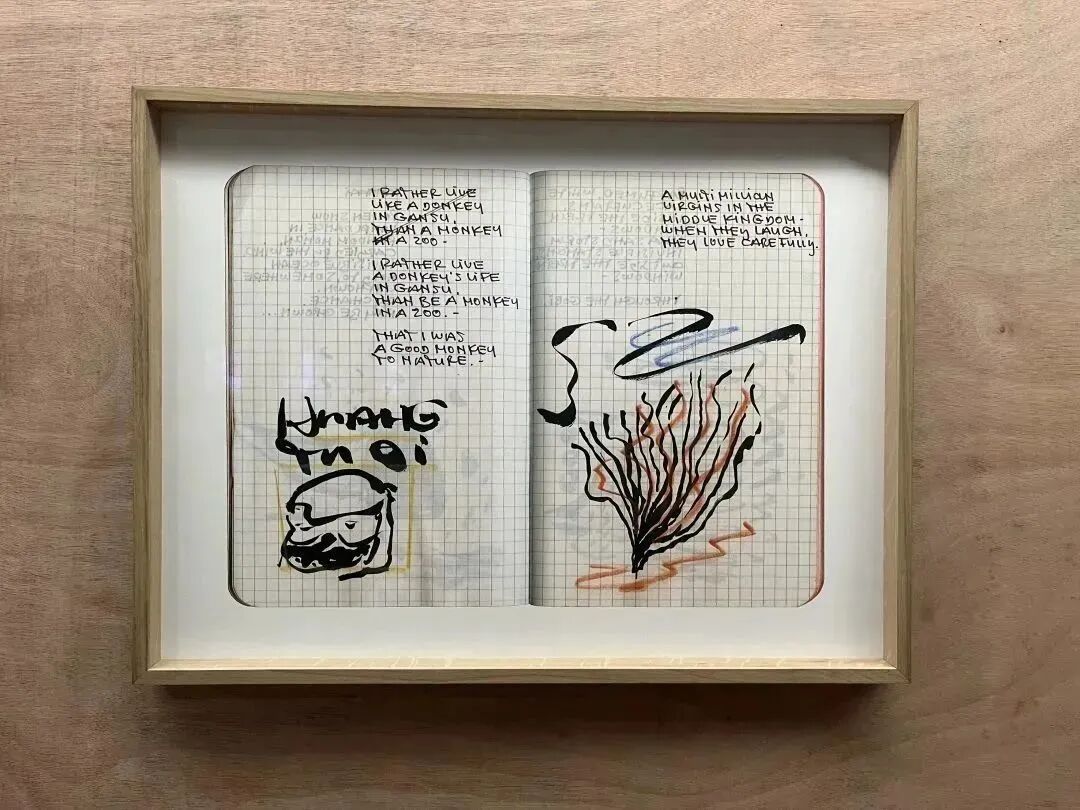 I RATHER LIVE
LIKE A DONKEY
IN GANSU,
THAN A MONKEY
IN A ZOO -
I RATHER LIVE
A DONKEY'S LIFE
IN GANSU,
THAN BE A MONKEY
IN A ZOO. -
THAT I WAS
A GOOD MONKEY
TO NATURE. -
HUANG
QI
A MULTI MILLION
VIRGINS IN THE
MIDDLE KINGDOM -
WHEN THEY LAUGH,
THEY LOVE CAREFULLY.